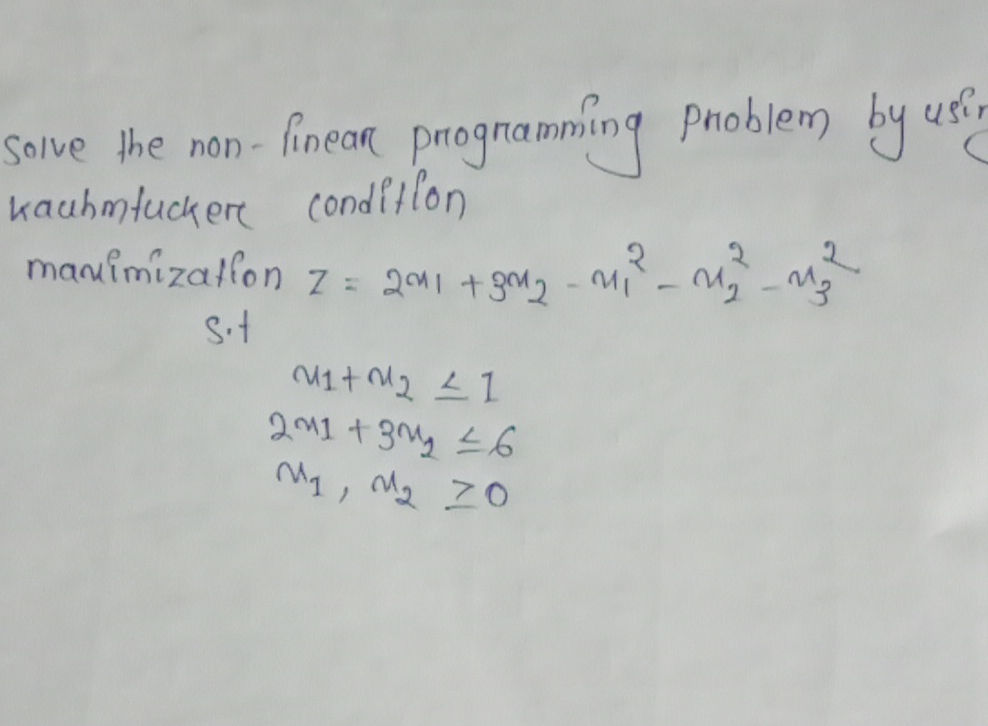 Solve the non-linear programming problem by usin
kauhmtucker condition
maximization z = 2x1 + 3x2 - x1² - x2² - x3²
s.t
x1 + x2 ≤ 1
2x1 + 3x2 ≤ 6
x1, x2 ≥ 0